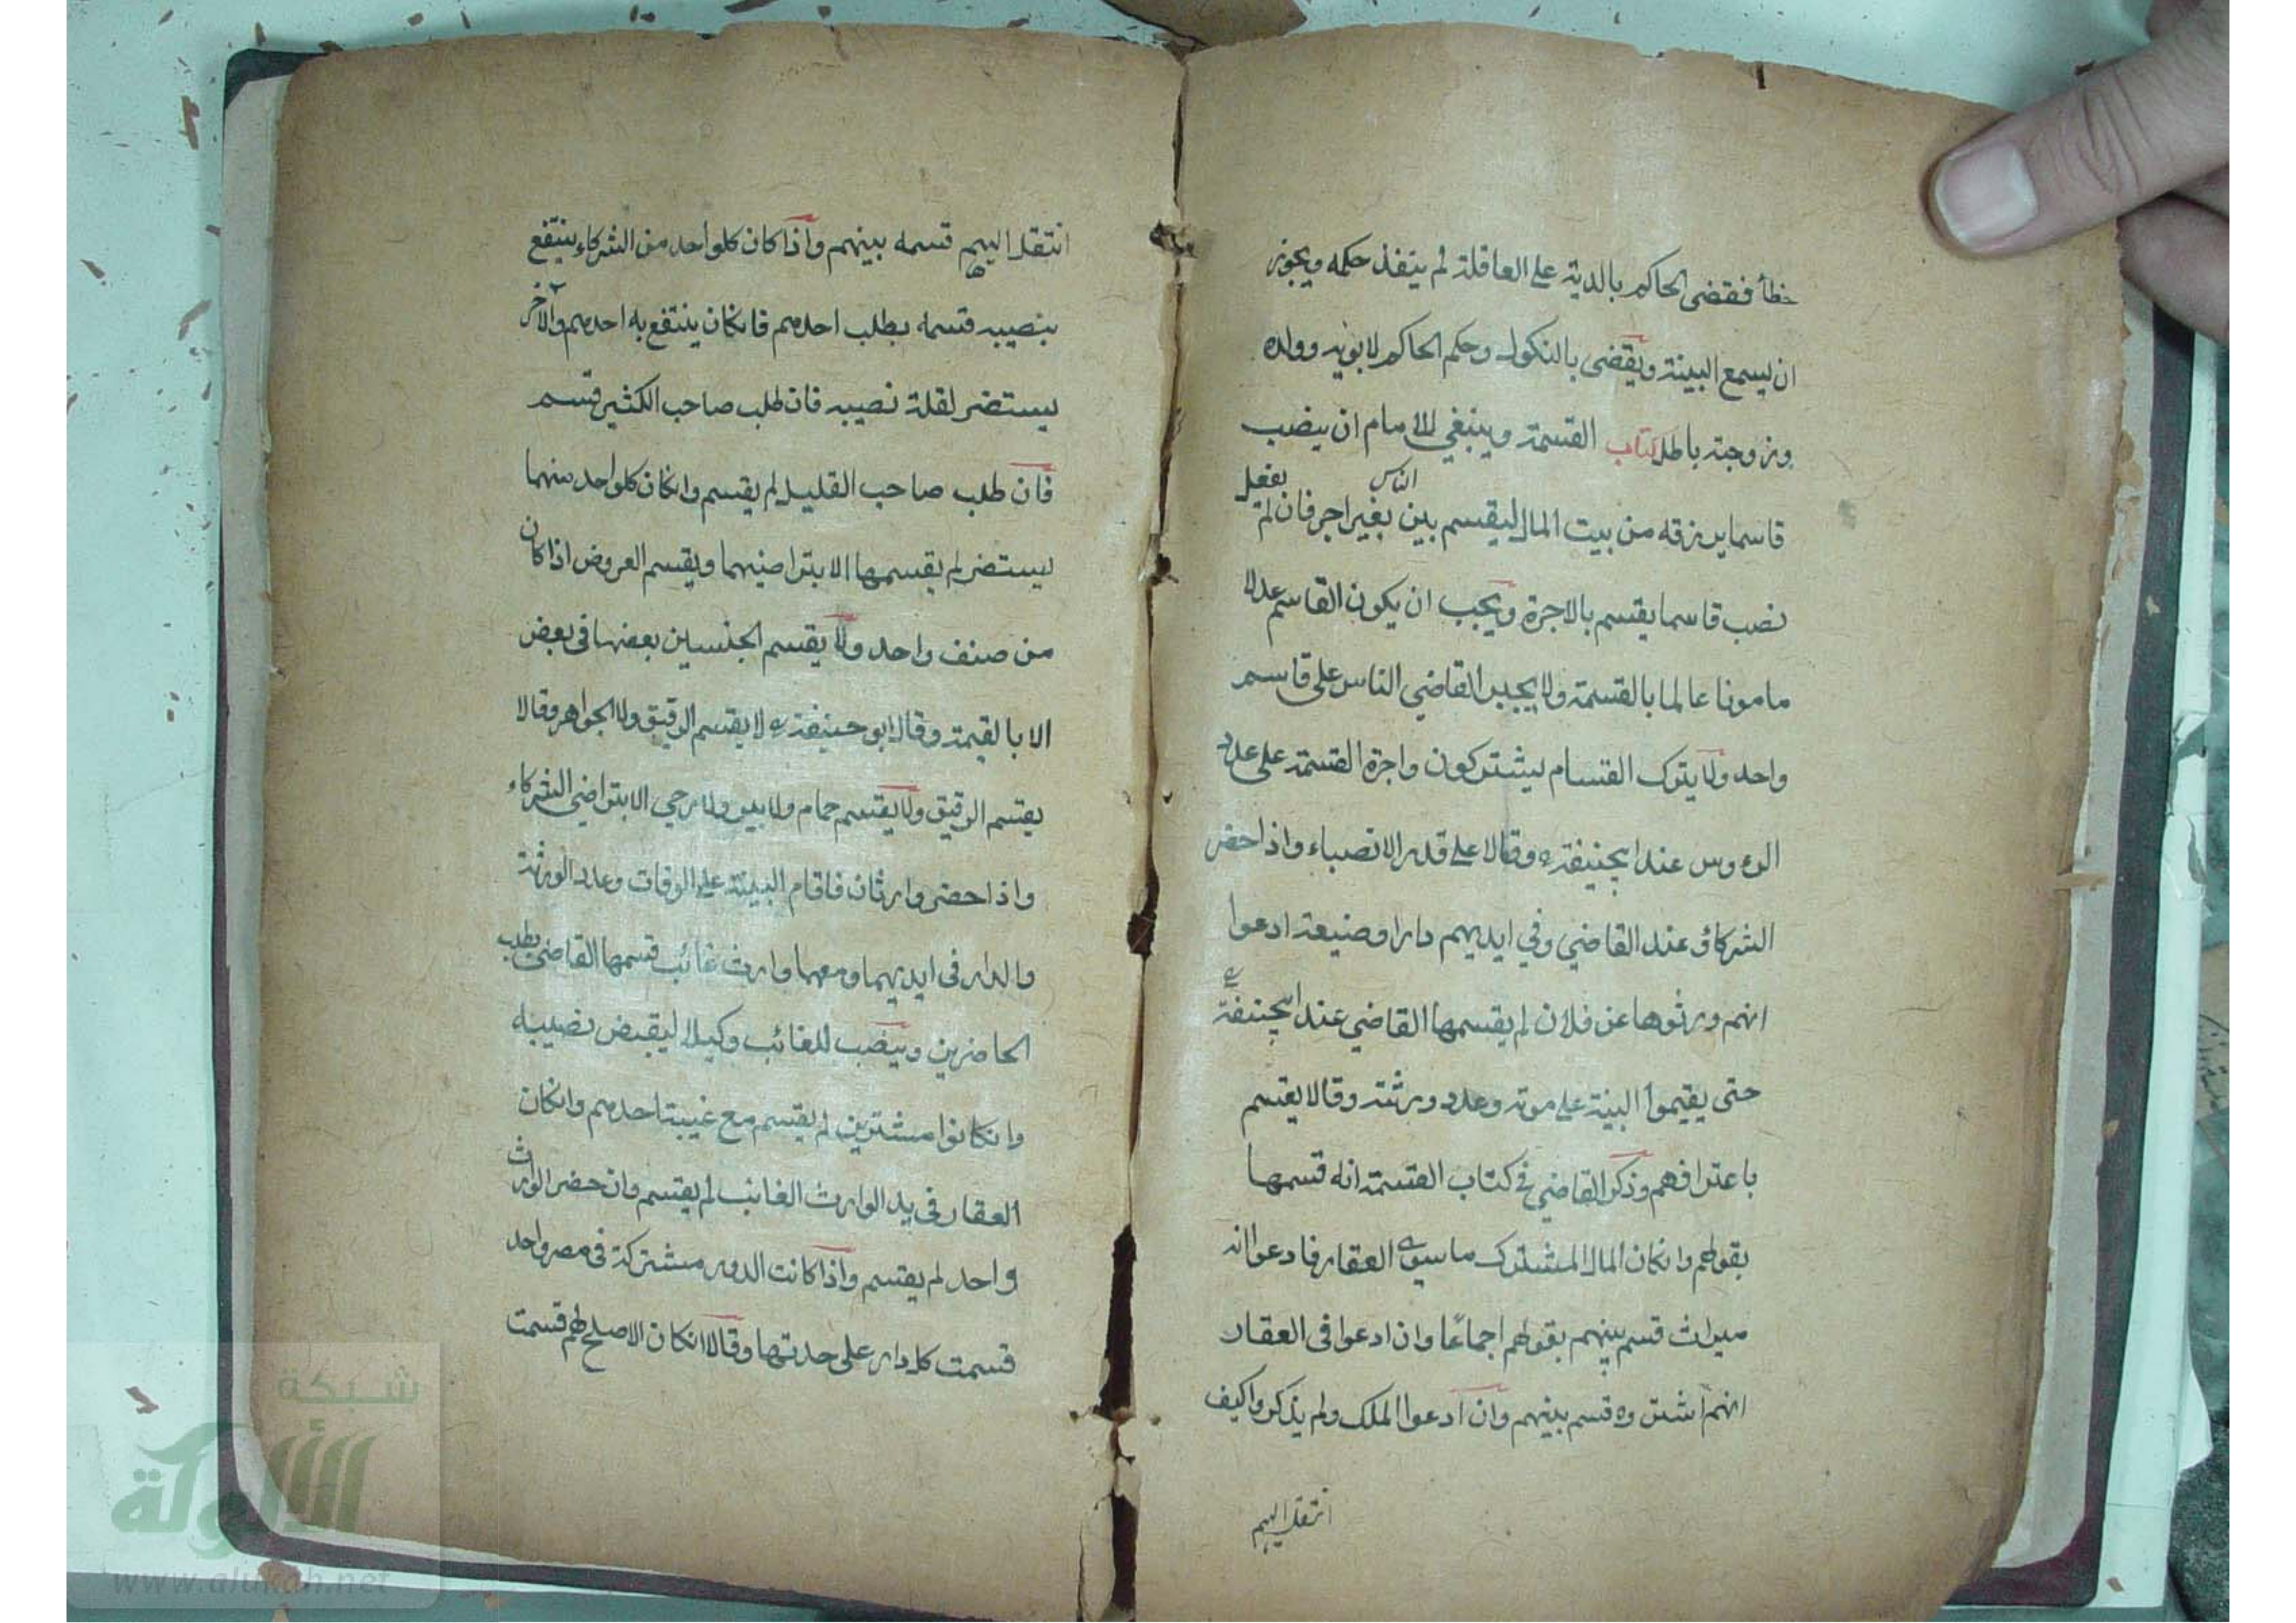 خطأ فقضى الحاكم بالدية على العاقلة لم ينفذ حكمه ويجوز
ان يسمع البينة ويقضى بالنكول وحكم الحاكم لابويه وولده
وزوجته باطل كتاب القسمة وينبغي للامام ان ينصب
قاسما يرزقه من بيت المال ليقسم بين الناس بغير اجر فان لم يفعل
نصب قاسما يقسم بالاجرة ويجب ان يكون القاسم عدلا
مامونا عالما بالقسمة ولا يجبر القاضي الناس على قاسم
واحد ولا يترك القسام يشتركون واجرة القسمة على عدد
الرءوس عند ابيحنيفة وقالا على قدر الانصباء واذا حضر
الشركاؤ عند القاضي وفي ايديهم دارا وضيعة ادعوا
انهم ورثوها عن فلان لم يقسمها القاضي عند ابيحنيفة
حتى يقيموا البينة على موته وعدد ورثته وقالا يقسم
باعترافهم وذكر القاضي في كتاب القسمة انه قسمها
بقولهم وانكان المال المشترك ما سوى العقار فادعوا انه
ميراث قسم بينهم بقولهم اجماعًا وان ادعوا في العقار
انهم اشتروه قسم بينهم وان ادعوا الملك ولم يذكروا كيف
انتقل اليهم
انتقل اليهم قسمه بينهم واذا كان كلواحد من الشركاء ينتفع
بنصيبه قسمه بطلب احدهم فانكان ينتفع به احدهم والآخر
يستضر لقلة نصيبه فان طلب صاحب الكثير قسم
فان طلب صاحب القليل لم يقسم وانكان كلواحد منهما
يستضر لم يقسمها الا بتراضيهما ويقسم العروض اذا كان
من صنف واحد ولا يقسم الجنسين بعضها في بعض
الا بالقيمة وقال ابو حنيفة لا يقسم الرقيق ولا الجواهر وقالا
يقسم الرقيق ولا يقسم حمام ولا بير ولا رحي الا بتراضي الشركاء
واذا حضر وارثان فاقام البينة على الوفات وعدد الورثة
والدار في ايديهما ومعهما وارث غائب قسمها القاضي بطلب
الحاضرين وينصب للغائب وكيلا ليقبض نصيبه
وانكانوا مشترين لم يقسم مع غيبة احدهم وانكان
العقار في يد الوارث الغائب لم يقسم وان حضر الوارث
واحد لم يقسم واذا كانت الدور مشتركة في مصر واحد
قسمت كل دار على حدتها وقالا انكان الاصلح لهم قسمت
شبكة
الألوكة
www.alukah.net